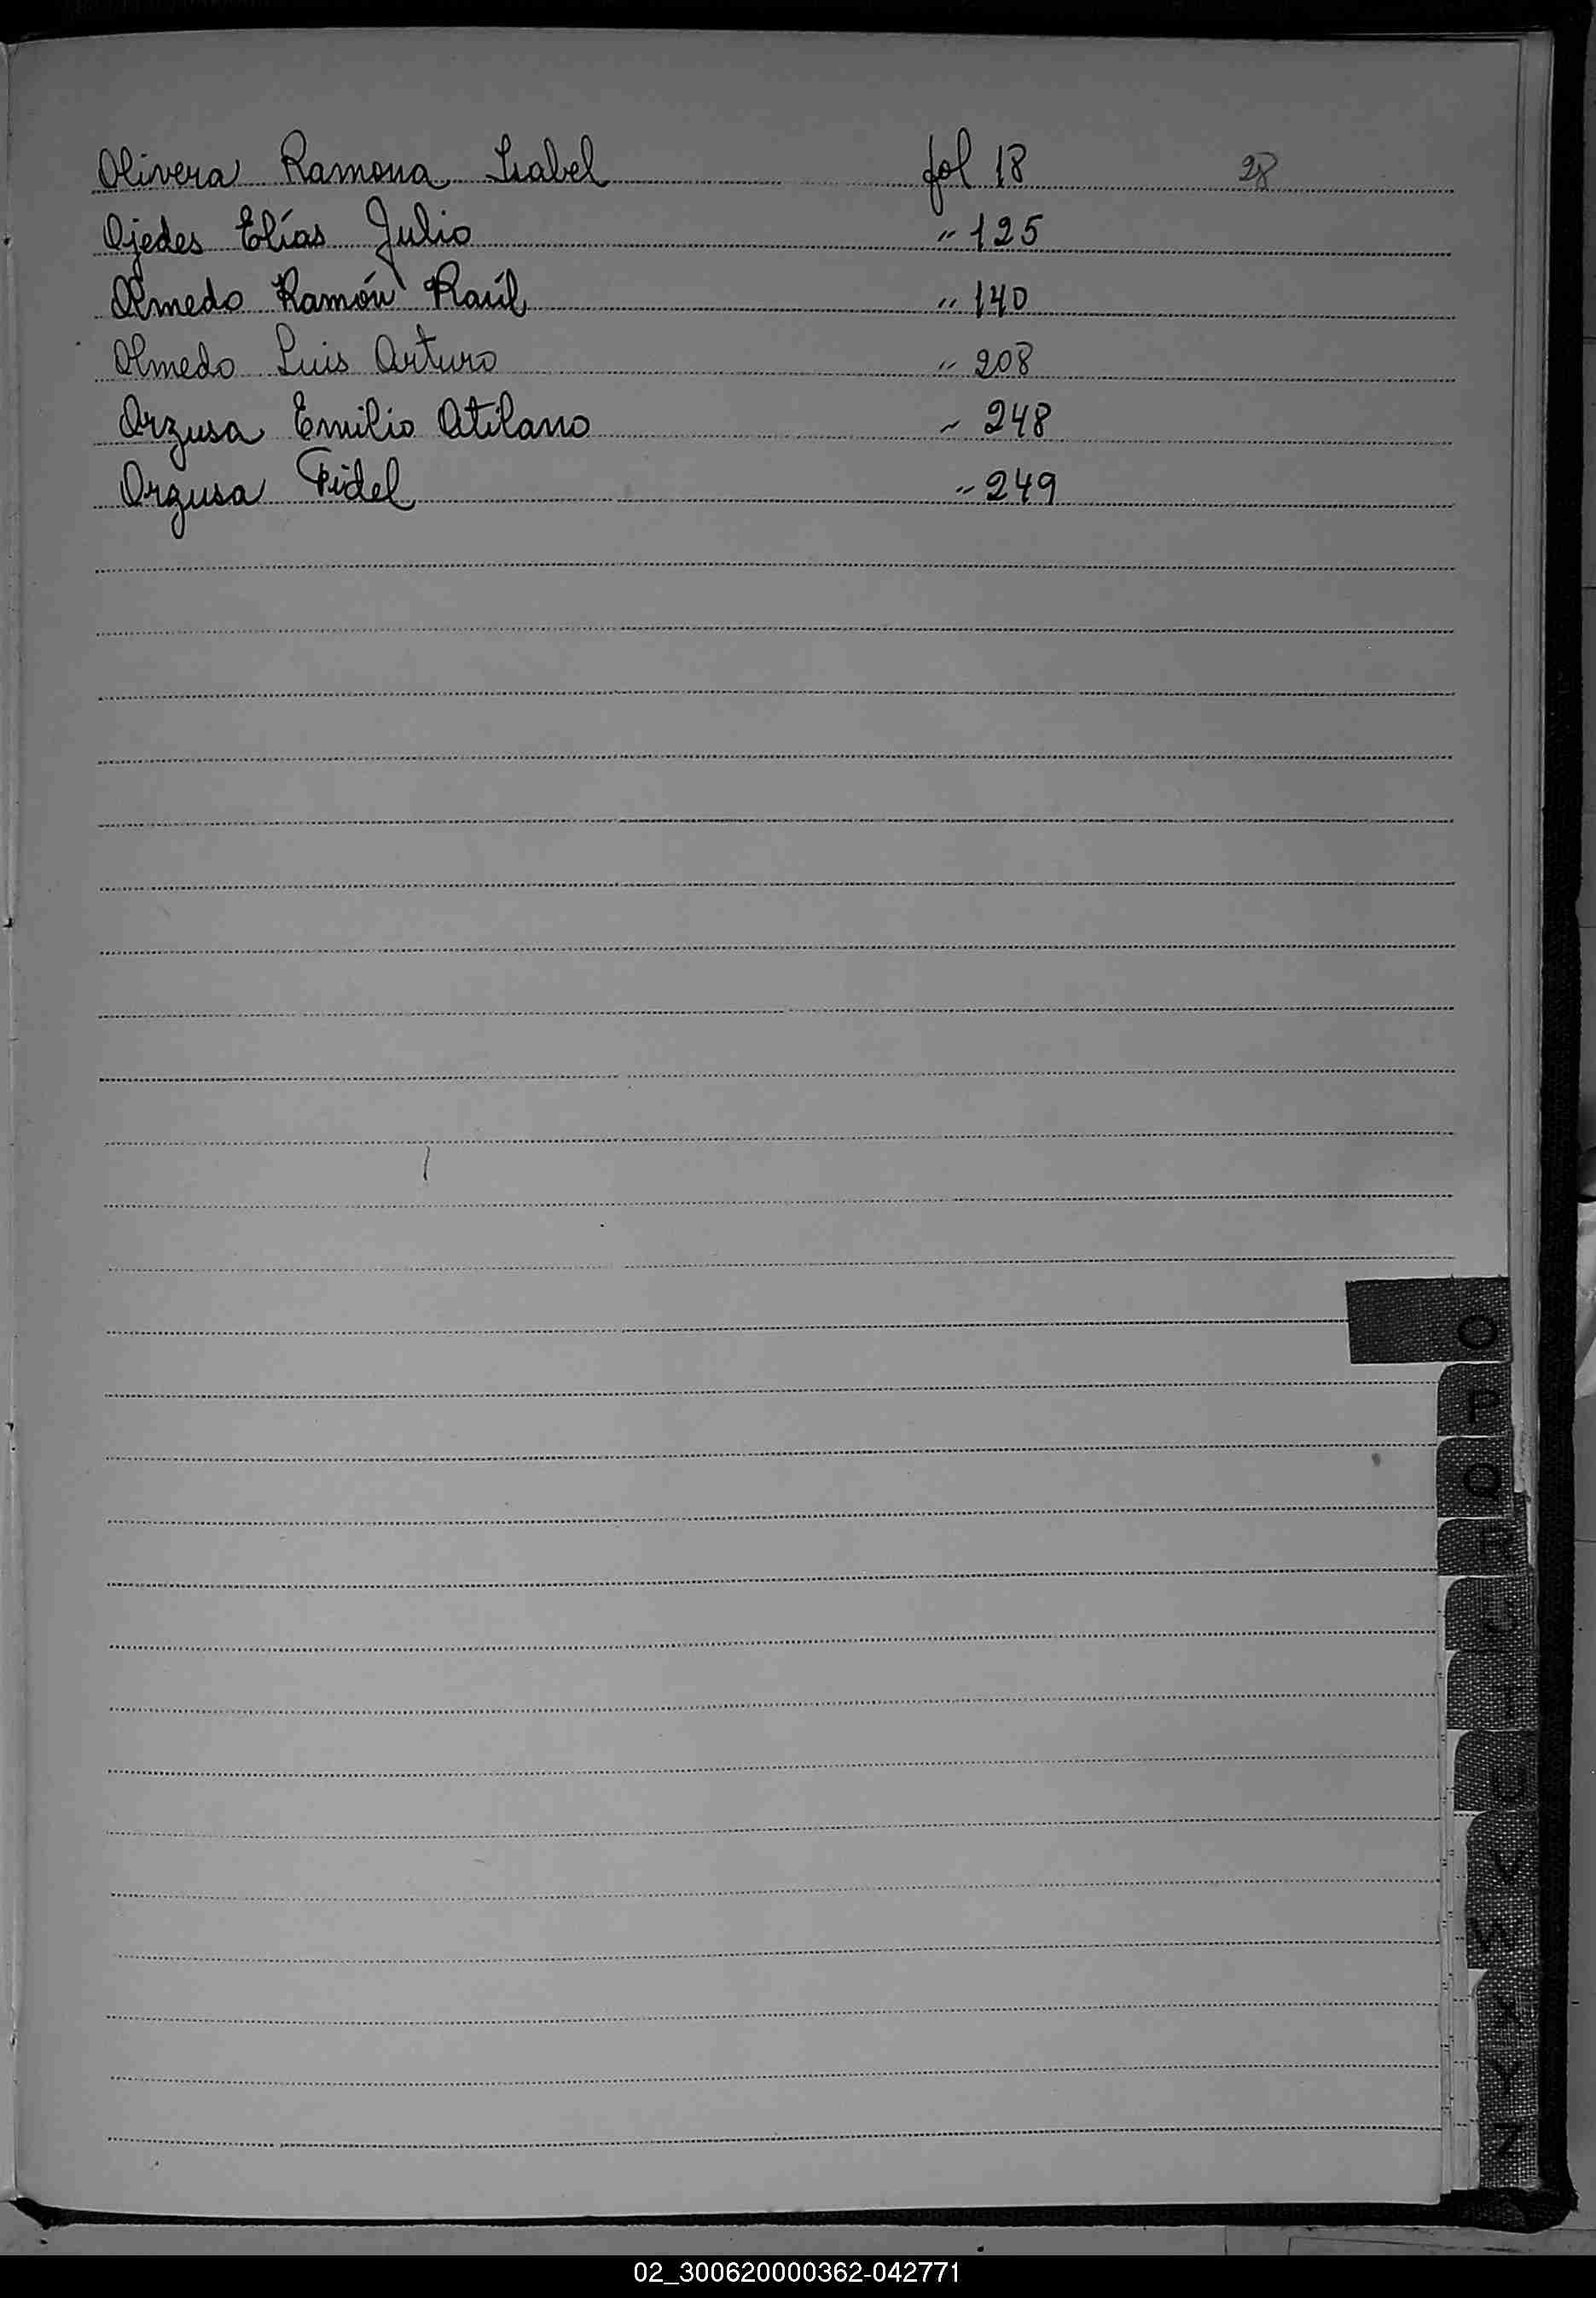 Olivera Ramona Isabel fol 18 28
Ojedes Elías Julio " 125
Olmedo Ramón Raúl " 140
Olmedo Luis Arturo " 208
Orzusa Emilio Atilano " 248
Orzusa Fidel " 249
O
P
Q
R
S
T
U
V
W
X
Y
Z
02_300620000362-042771